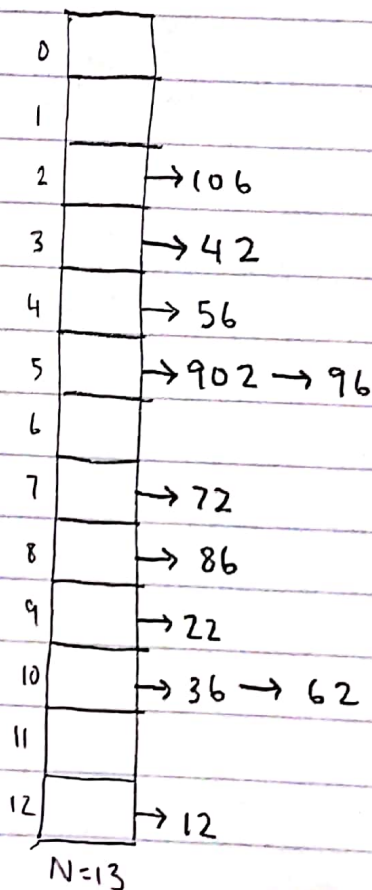 0
1
2 → 106
3 → 42
4 → 56
5 → 902 → 96
6
7 → 72
8 → 86
9 → 22
10 → 36 → 62
11
12 → 12
N=13